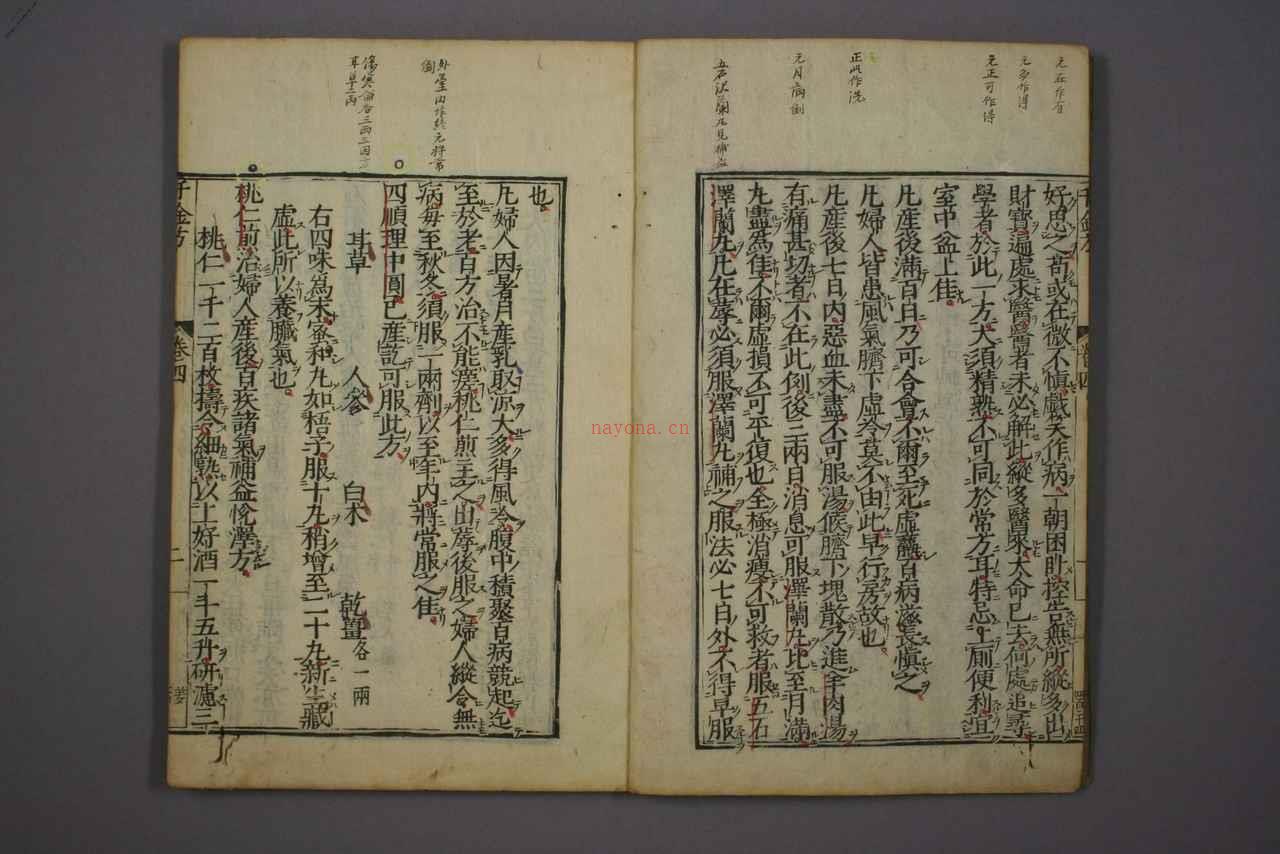 元在作有
元多作得
元正可作得
正此作洗
五石澤蘭丸見補益
好思之苟或在微不慎戲笑作病一朝困卧控告無所縱多出
財寶遍處求醫醫者未必解此縱多醫來大命已去何處追尋
學者於此一方大須精熟不可同於常方耳特忌上厠便利宜
室中盆上佳
凡產後滿百日乃可合會不爾至死虛羸百病滋長慎之
凡婦人皆患風氣臍下虛冷莫不由此早行房故也
凡產後七日內惡血未盡不可服湯候臍下塊散乃進羊肉湯
有痛甚切者不在此例後三兩日消息可服澤蘭丸比至月滿
丸盡為佳不爾虛損不可平復也全極消瘦不可救者服五石
澤蘭丸凡在蓐必須服澤蘭丸補之服法必七日外不得早服
也
凡婦人因暑月產乳取凉太多得風冷腹中積聚百病競起迄
至於老百方治不能瘥桃仁煎主之出蓐後服之婦人縱令無
病每至秋冬須服一兩劑以至年內將常服之佳
四順理中圓已產訖可服此方
甘草 人參 白朮 乾薑各一兩
右四味為末蜜和丸如梧子服十丸稍增至二十丸新生藏
虛此所以養臟氣也
桃仁煎治婦人產後百疾諸氣補益悅澤方
桃仁一千二百枚擣令細熟以上好酒一斗五升研濾三
千金方
卷四
二
nayona.cn